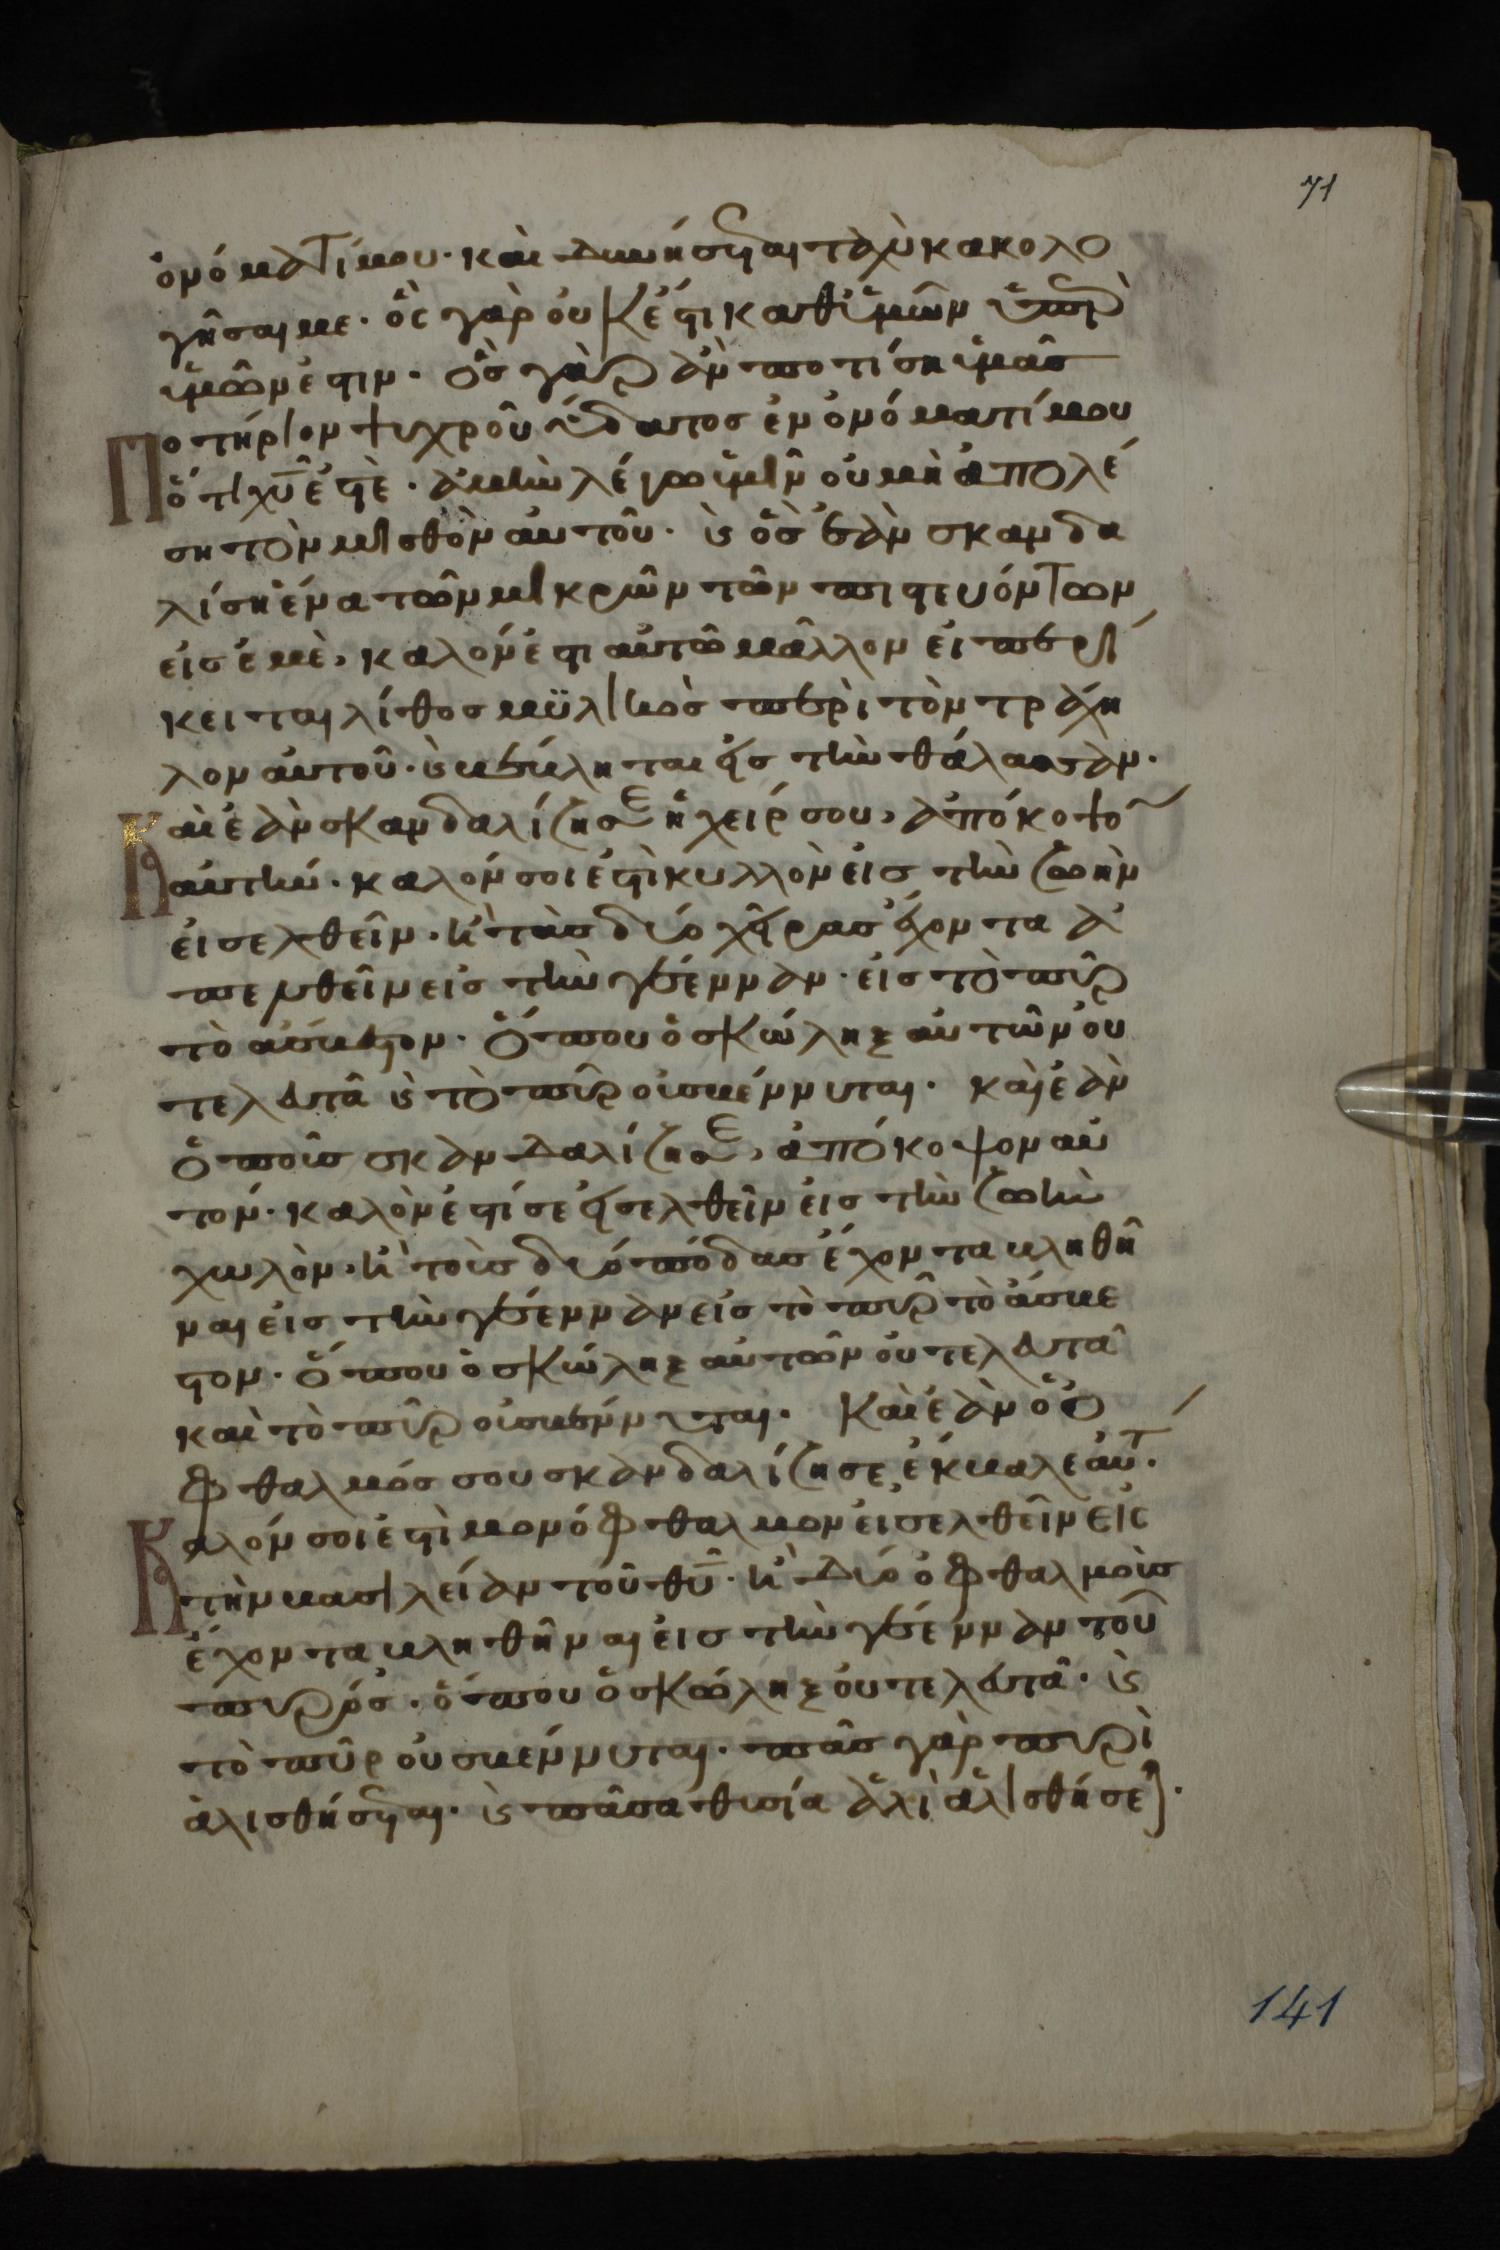 71
ὀνόματί μου· καὶ δυνήσεται ταχὺ κακολο
γῆσαι με· ὃς γὰρ οὐκ ἔστι καθ ἡμῶν ὑπὲρ
ἡμῶν ἐστιν· ὃς γὰρ ἂν ποτίση ὑμᾶς
Ποτήριον ψυχροῦ ὕδατος ἐν ὀνόματί μου
ὅτι χῡ ἐστὲ· ἀμὴν λέγω ὑμῖν οὐ μὴ ἀπολέ
ση τὸν μισθὸν αὐτοῦ· ϗ ὃς ἐὰν σκανδα
λίση ἕνα τῶν μικρῶν τῶν πιστευόντων
εἰς ἐμὲ, καλόν ἐστι αὐτῶ μᾶλλον εἰ περί
κειται λίθος μϋλικὸς περὶ τὸν τράχη
λον αὐτοῦ· ϗ βέβληται εἰς τὴν θάλασσαν·
Καὶ ἐὰν σκανδαλίζη σε ἡ χείρ σου, ἀπόκοψο
αὐτήν· καλόν σοι ἐστὶ κυλλὸν εἰς τὴν ζωὴν
εἰσελθεῖν· ἢ τὰς δύο χεῖρας ἔχοντα ἀ
πελθεῖν εἰς τὴν γέενναν· εἰς τὸ πῦρ
τὸ ἄσβεστον· ὅπου ὁ σκώληξ αὐτῶν οὐ
τελευτᾶ ϗ τὸ πῦρ οὐ σβέννυται· καὶ ἐὰν
ὁ ποῦς σκανδαλίζη σε, ἀπόκοψον αὐ
τόν· καλὸν ἐστί σε εἰσελθεῖν εἰς τὴν ζωὴν
χωλὸν· ἢ τοὺς δύο πόδας ἔχοντα βληθῆ
ναι εἰς τὴν γέενναν εἰς τὸ πῦρ τὸ ἄσβε
στον· ὅπου ὁ σκώληξ αὐτῶν οὐ τελευτᾶ
καὶ τὸ πῦρ οὐ σβέννυται· Καὶ ἐὰν ὁ ὀ
φθαλμός σου σκανδαλίζη σε, ἔκβαλε αὐτ·
Καλόν σοι ἐστὶ μονόφθαλμον εἰσελθεῖν εἰς
τὴν βασιλείαν τοῦ θῡ· ἢ δύο ὀφθαλμοὺς
ἔχοντα βληθῆναι εἰς τὴν γέενναν τοῦ
πυρός· ὅπου ὁ σκώληξ οὐ τελευτᾶ· ϗ
τὸ πῦρ οὐ σβέννυται· πᾶς γὰρ πυρὶ
ἁλισθήσεται· ϗ πᾶσα θυσία ἁλὶ ἁλισθήσε·
141